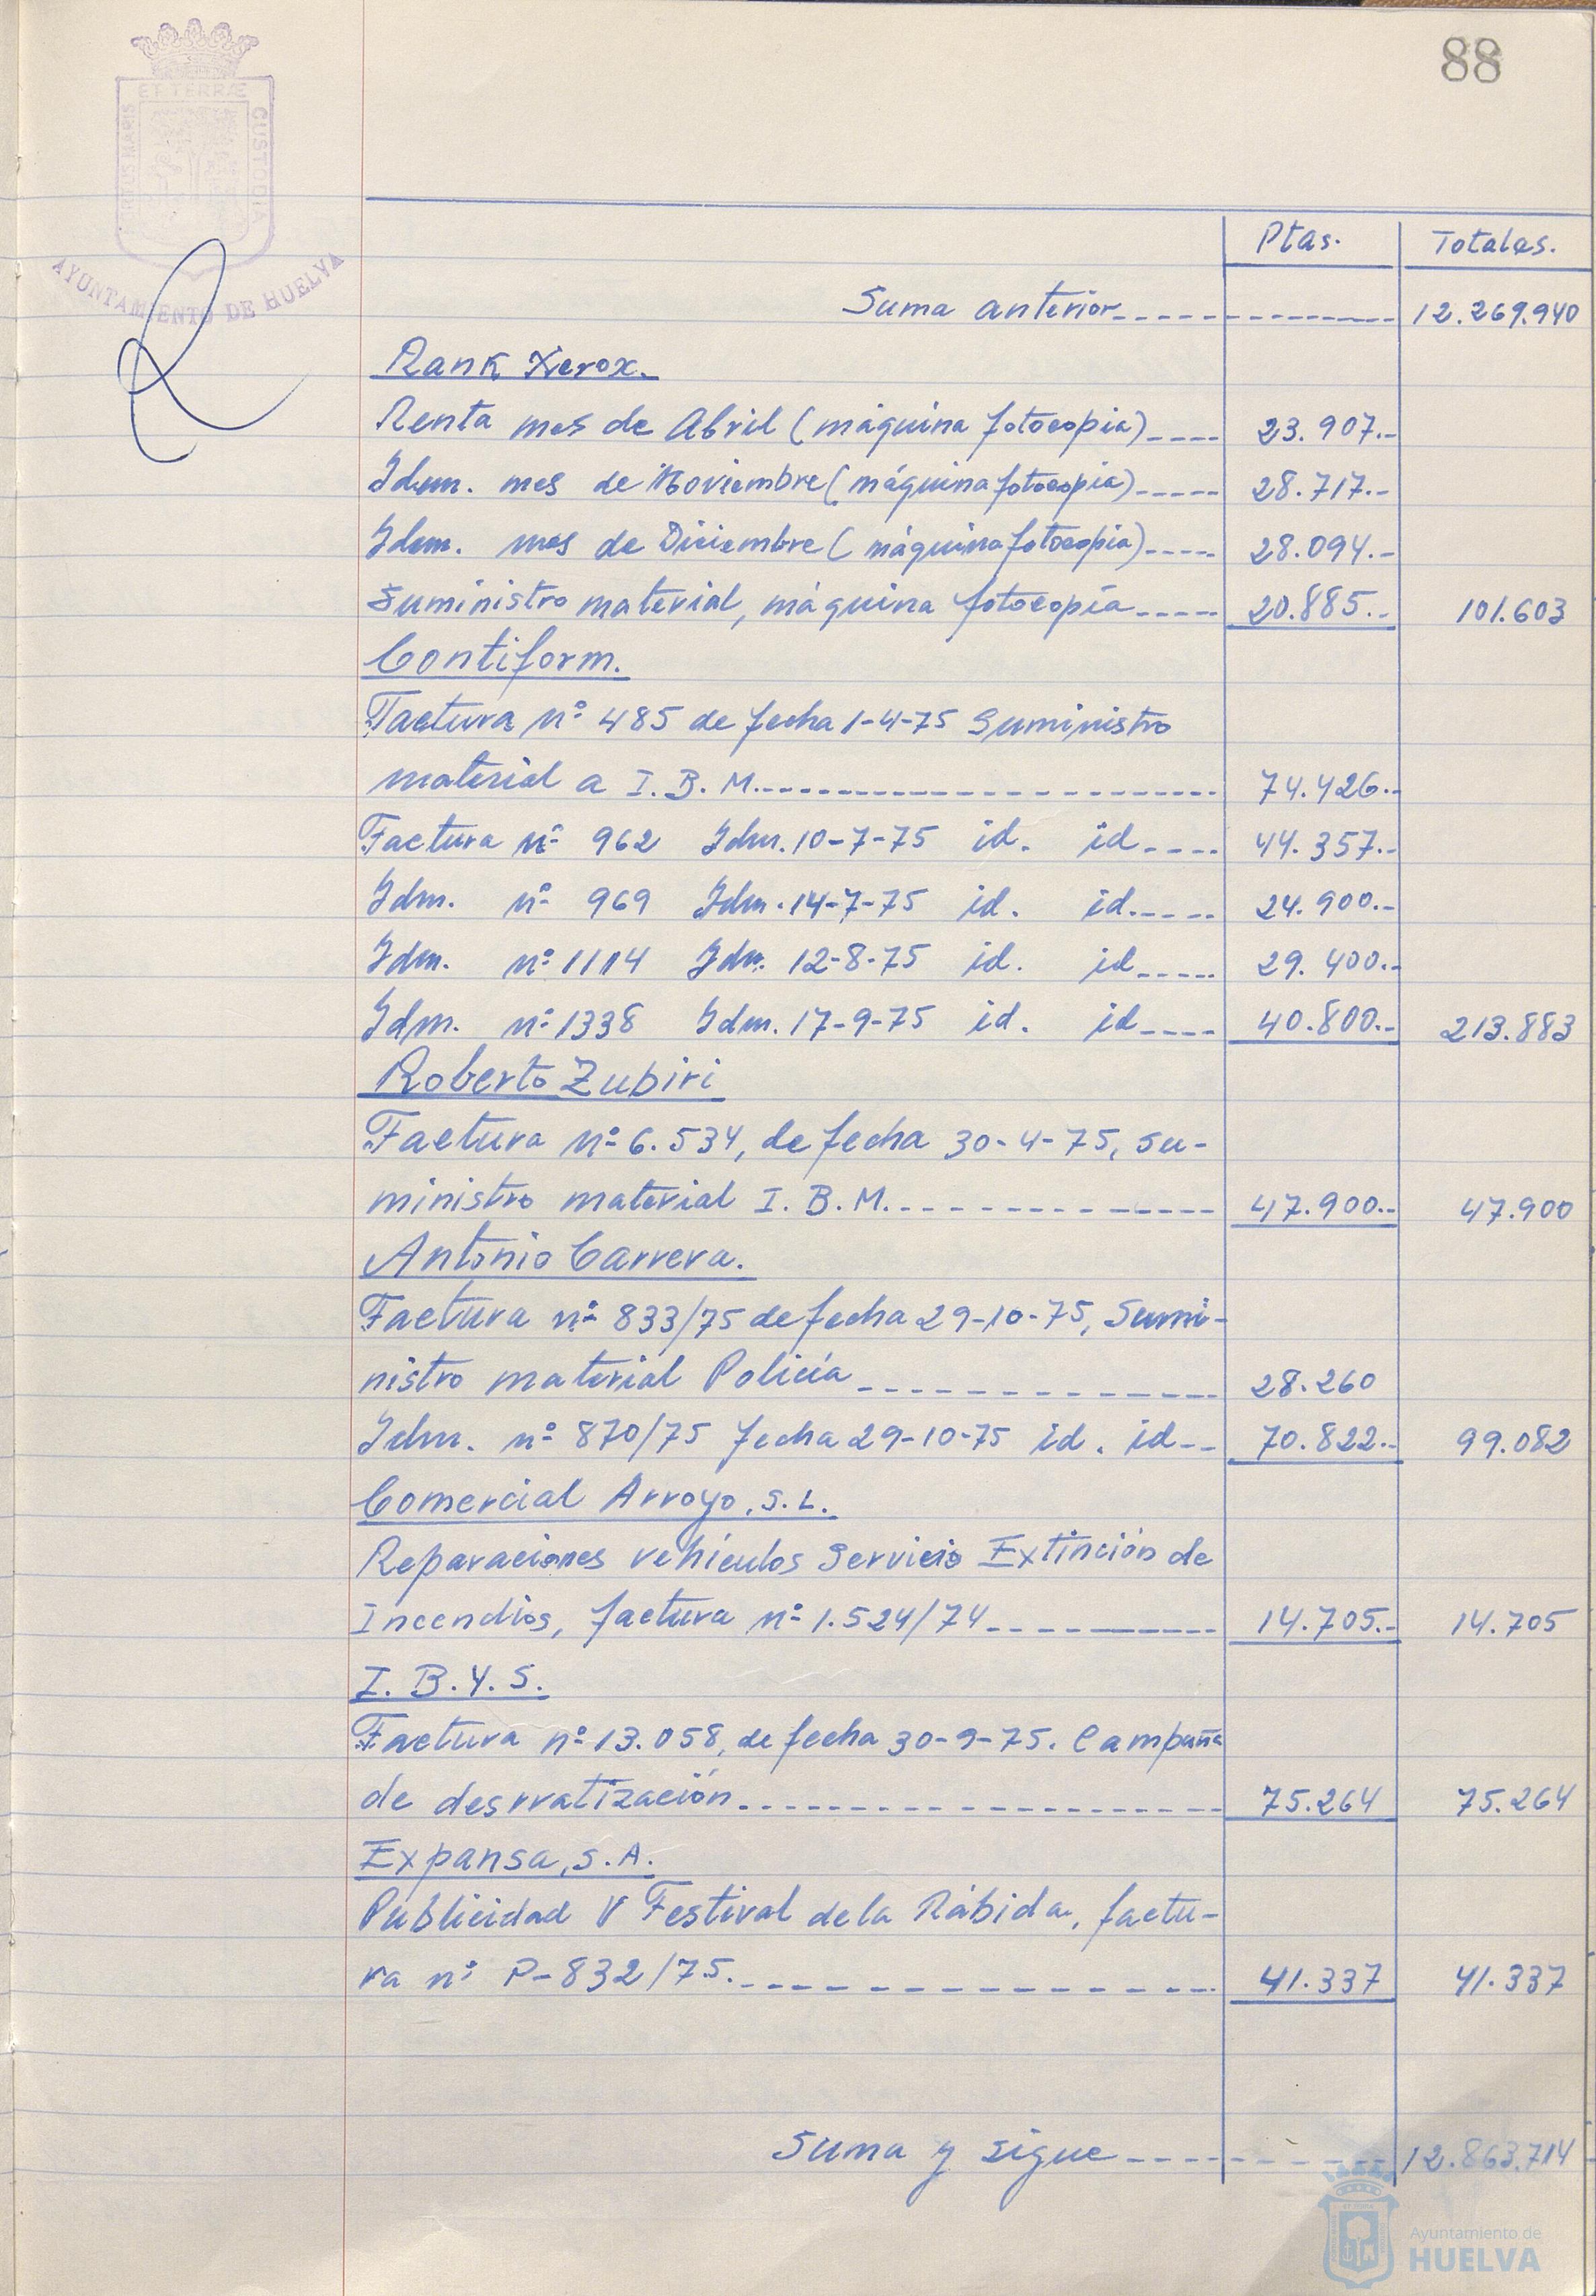 88
ET TERRÆ
PORTUS MARIS
CUSTODIA
AYUNTAMIENTO DE HUELVA
Ptas. Totales.
Suma anterior 12.269.940
Rank Xerox.
Renta mes de Abril (máquina fotocopia) 23.907.-
Idem. mes de Noviembre (máquina fotocopia) 28.717.-
Idem. mes de Diciembre (máquina fotocopia) 28.094.-
Suministro material, máquina fotocopia 20.885.- 101.603
Contiform.
Factura nº 485 de fecha 1-4-75 Suministro
material a I.B.M. 74.426.-
Factura nº 962 Idm. 10-7-75 id. id. 44.357.-
Idm. nº 969 Idm. 14-7-75 id. id. 24.900.-
Idm. nº 1114 Idm. 12-8-75 id. id. 29.400.-
Idm. nº 1338 Idm. 17-9-75 id. id. 40.800.- 213.883
Roberto Zubiri
Factura nº 6.534, de fecha 30-4-75, su-
ministro material I.B.M. 47.900.- 47.900
Antonio Carrera.
Factura nº 833/75 de fecha 29-10-75, Sumi-
nistro material Policía 28.260
Idm. nº 870/75 fecha 29-10-75 id. id 70.822.- 99.082
Comercial Arroyo, S.L.
Reparaciones vehículos Servicio Extinción de
Incendios, factura nº 1.524/74 14.705.- 14.705
I.B.Y.S.
Factura nº 13.058, de fecha 30-9-75. Campaña
de desrratización 75.264 75.264
Expansa, S.A.
Publicidad V Festival de la Rábida, factu-
ra nº P-832/75. 41.337 41.337
Suma y sigue 12.863.714
Ayuntamiento de
HUELVA